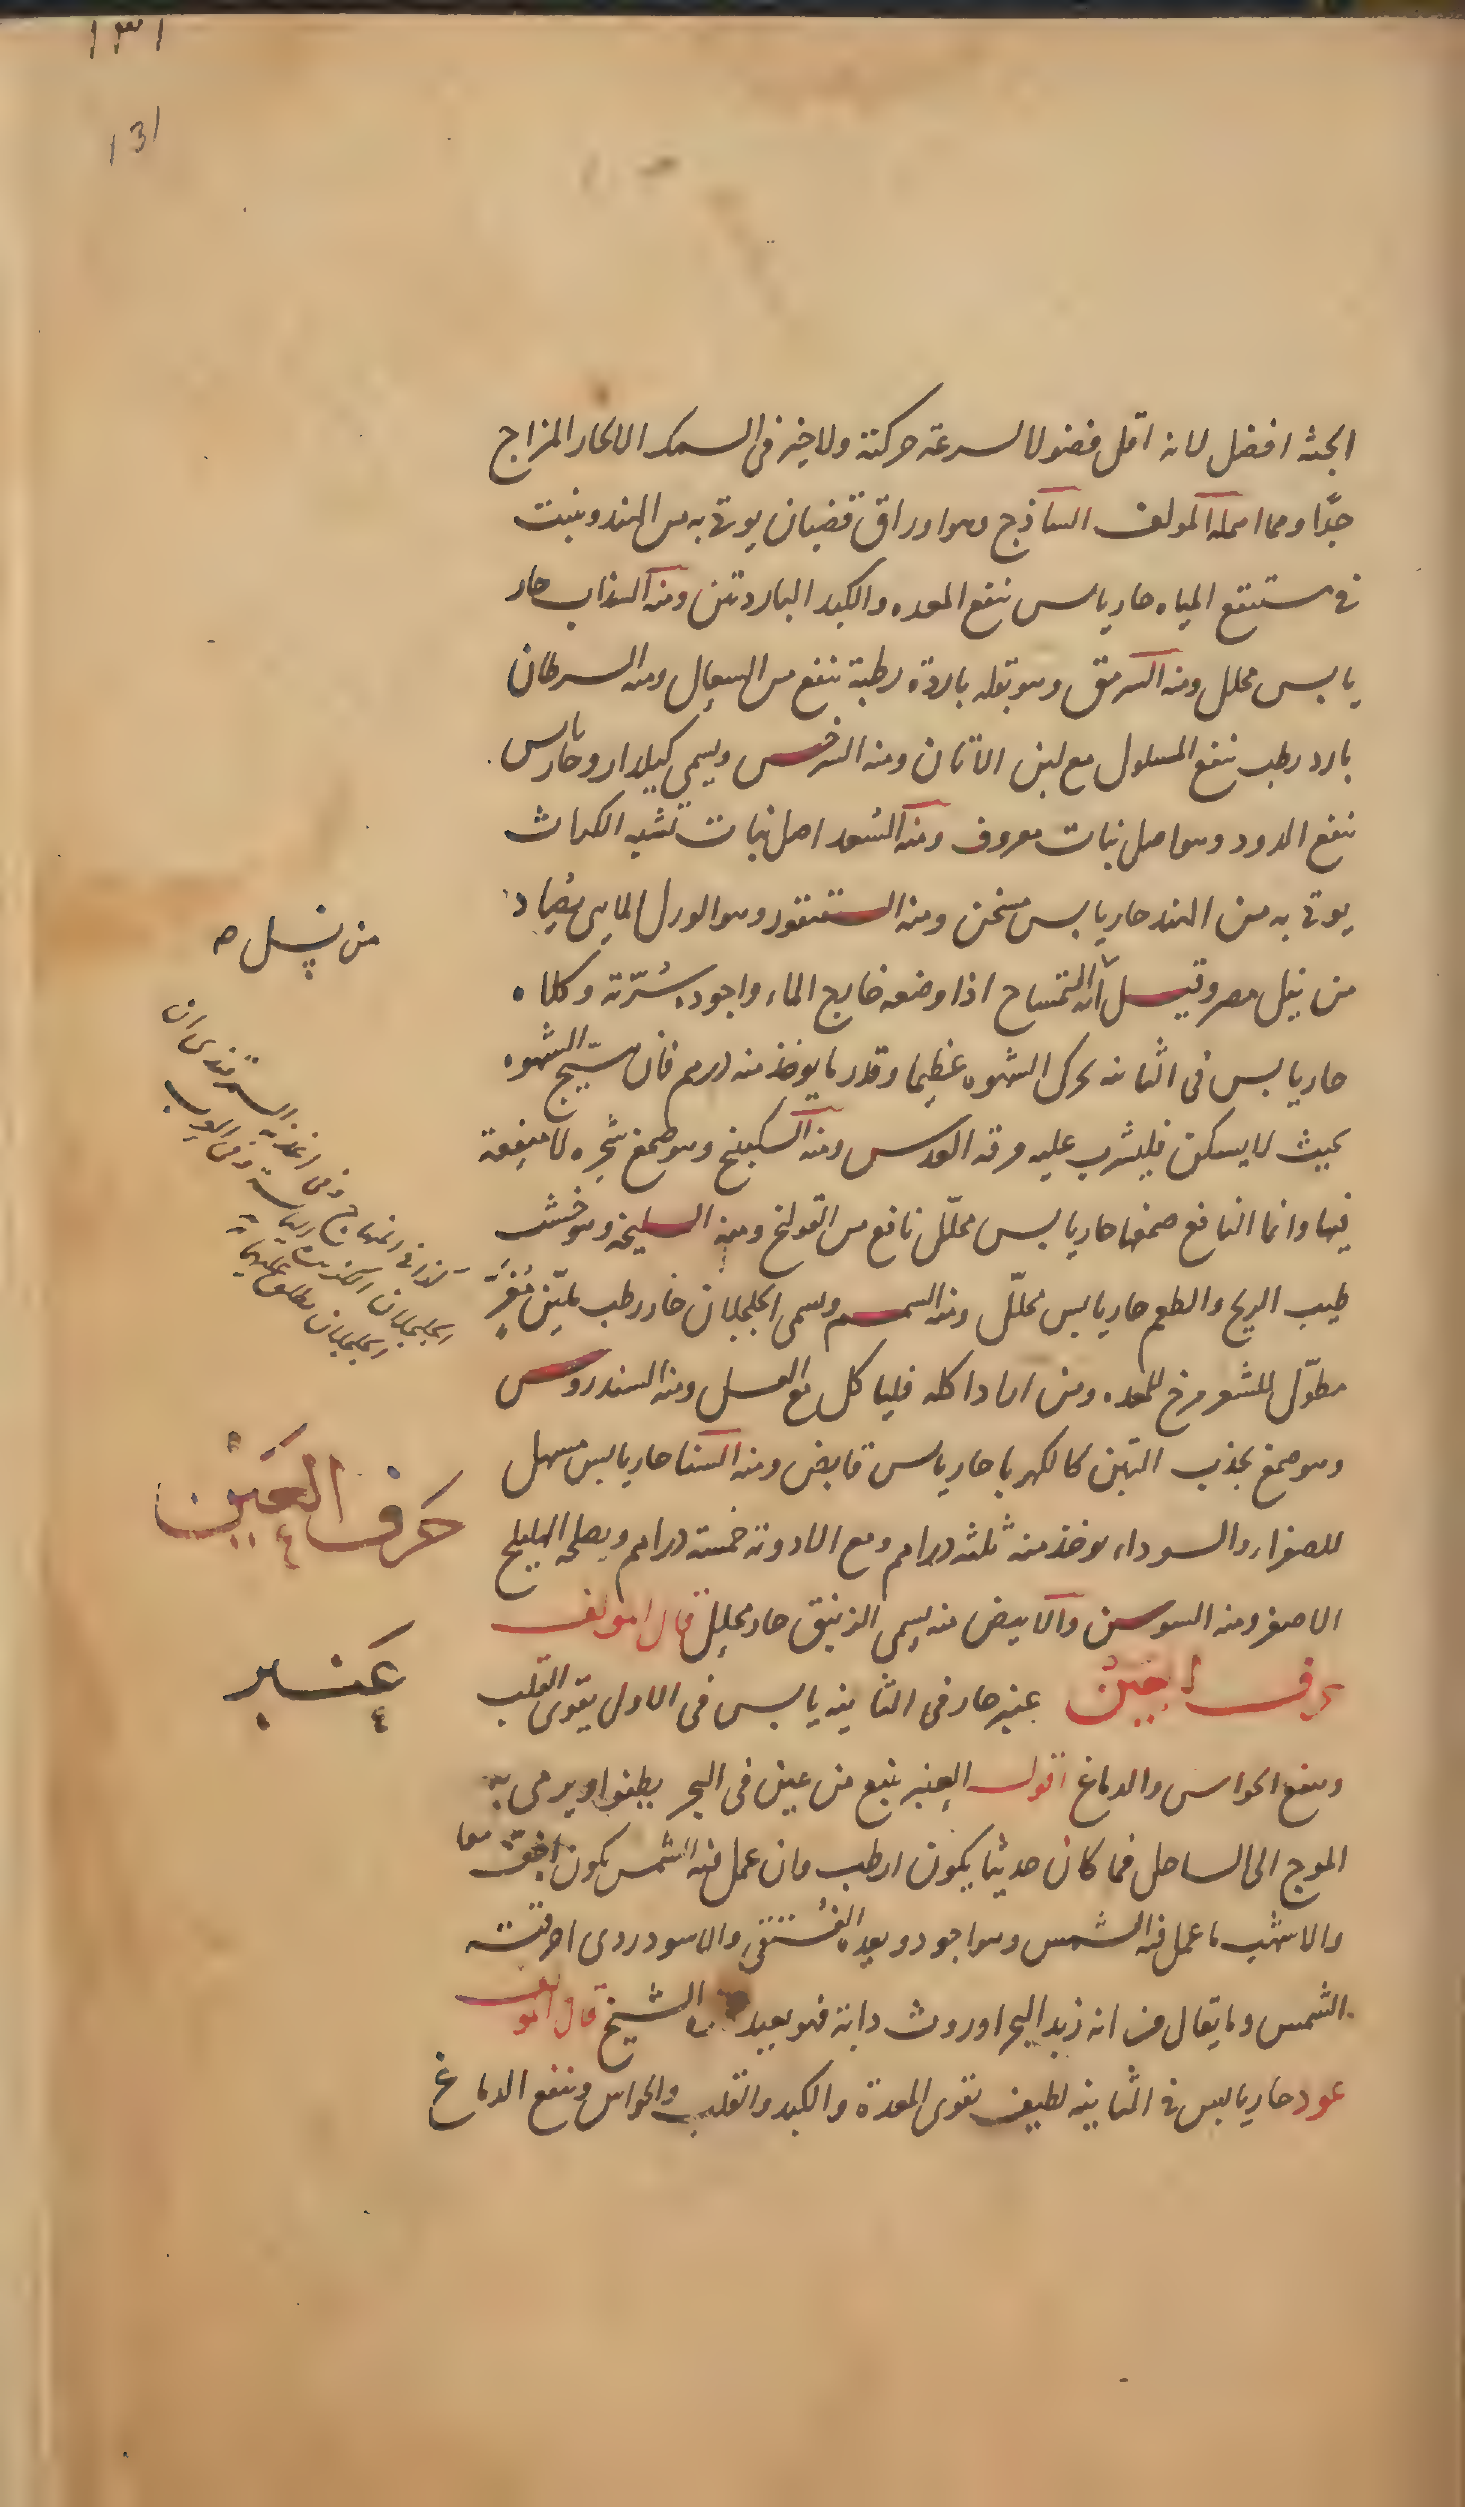 ١٣١
131
الجثه افضل لانه اقل فضولا لسرعة حركته ولا خير فى السمك الا لحار المزاج
جدًا ومما اهمله المولف الساذج وهو اوراق قضبان يوتى به من الهند وينبت
فى مستنقع المياه حار يابس ينفع المعده والكبد الباردتين ومنه السذاب حار
يابس محلل ومنه السرمق وهو بقله باردة رطبة تنفع من السعال ومنه السرطان
بارد رطب ينفع المسلول مع لبن الاتان ومنه السرخس ويسمى كيلدارو حار يابس
ينفع الدود وهو اصل نبات معروف ومنه السُعد اصل نبات تشبه الكراث
يوتى به من الهند حار يابس مسخن ومنه السقنقور وهو الورل المايى يصاد
من نيل مصر وقيل انه التمساح اذا وضعه خارج الماء واجوده سُرّته وكلاه
حار يابس فى الثانيه يحرك الشهوه عظيما وقدر ما يوخذ منه درهم فان هيّج الشهوه
بحيث لا يسكن فليشرب عليه مرقه العدس ومنه السكبينج وهو صمغ شجره لا منفعة
فيها وانما النافع صمغها حار يابس محلّل نافع من القولنج ومنه السليخه وهو خشب
طيب الريح والطعم حار يابس محلّل ومنه السمسم ويسمى الجلجلان حار رطب مليّن مُغرٍّ
مطوّل للشعر مرخ للمعده ومن اراد اكله فلياكل مع العسل ومنه السندروس
وهو صمغ يجذب التبن كالكهربا حار يابس قابض ومنه السنا حار يابس مسهل
للصفراء والسوداء يوخذ منه ثلثه دراهم ومع الادويه خمسة دراهم ويصلحه الهليلج
الاصفر ومنه السوسن والابيض منه يسمى الزنبق حار محلل قال المولف
حرف العين عنبر حار فى الثانيه يابس فى الاول يقوى القلب
وينفع الحواس والدماغ اقول العنبر ينبع من عين فى البحر يطفوا ويرمى به
الموج الى الساحل فما كان حديثا يكون ارطب وان عمل فيه الشمس يكون اجف
والاشهب ما عمل فيه الشمس وهو اجود وبعده الفُستقى والاسود ردى احرقته
الشمس وما يقال من انه زبد البحر او روث دابة فهو بعيد الشيخ قال المولف
عود حار يابس فى الثانيه لطيف يقوى المعدة والكبد والقلب والحواس وينفع الدماغ
من نيل ص
كذا فى المنهاج وفى اغذيه السمرقندى ان
حَرف العَيْن
عَنبر